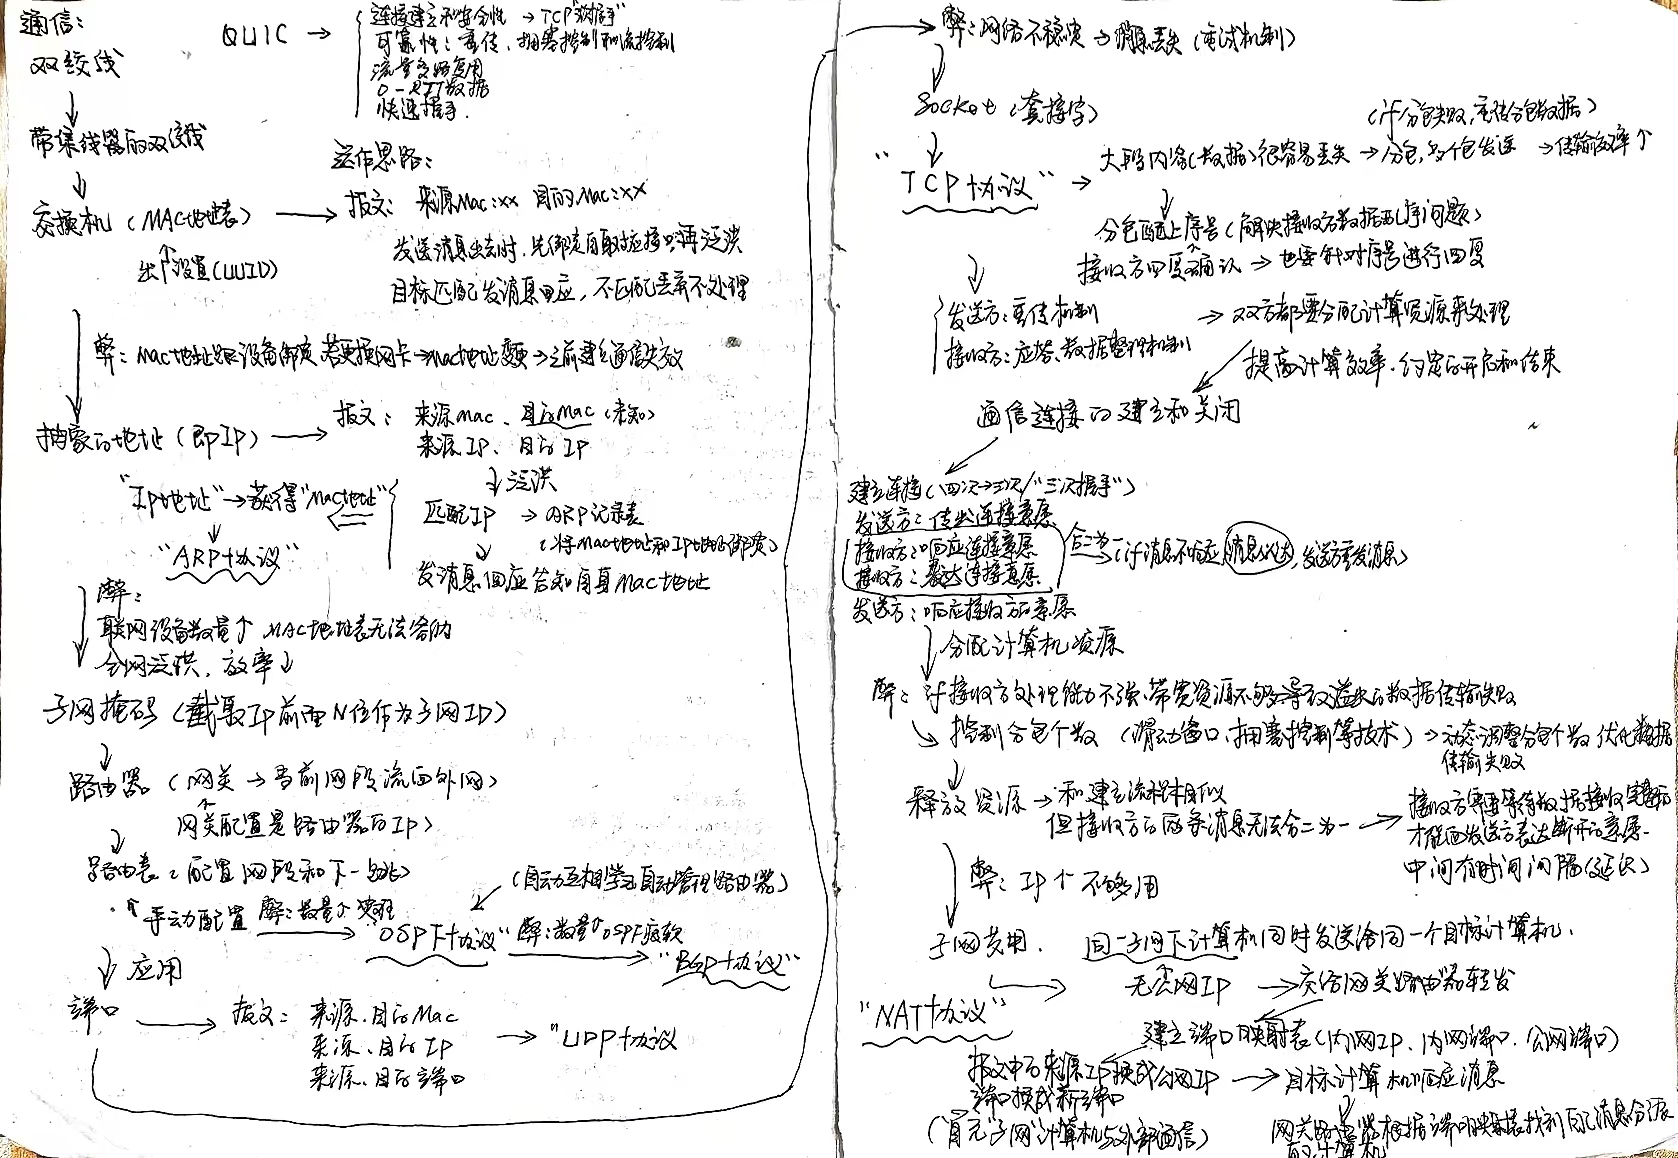 通信：
双绞线
QUIC →
连接建立和安全性 → TCP"三次握手"
可靠性：重传、拥塞控制和流控制
流量多路复用
0-RTT数据
快速握手.
带集线器的双绞线
交换机（MAC地址表）
出厂设置(UUID)
运作思路：
报文： 来源Mac:xx 目的Mac:xx
发送消息出去时，先绑定自身对应接口再泛洪
目标匹配发消息回应，不匹配丢弃不处理
弊：Mac地址跟设备绑定，若更换网卡→Mac地址变更→之前建立通信失效
抽象的地址（即IP） →
报文： 来源Mac、目的Mac（未知）
来源IP、目的IP
↓泛洪
匹配IP → ARP记录表
（将Mac地址和IP地址绑定）
发消息回应告知自身Mac地址
"Ip地址"→获得"Mac地址"
"ARP协议"
弊：
联网设备数量↑ MAC地址表无法容纳
全网泛洪，效率↓
子网掩码（截取IP前面N位作为子网ID）
路由器（网关→当前网段流向外网）
网关配置是路由器的IP）
路由表：（配置网段和下一跳）
手动配置 弊：数量↑ 繁琐
（自动互相学习自动管理路由器）
"OSPF协议" 弊：数量↑OSPF疲软
"BGP协议"
↓应用
端口 →
报文： 来源、目的Mac
来源、目的IP
来源、目的端口
→ "UDP协议
弊：网络不稳定→消息丢失（重试机制）
Socket（套接字）
（if分包失败，重传分包数据）
"TCP协议" → 大段内容(数据)很容易丢失→分包，多个包发送 →传输效率↑
分包配上序号（解决接收方数据乱序问题）
接收方回复确认→也要针对序号进行回复
发送方：重传机制
接收方：应答、数据整理机制
→ 双方都要分配计算资源来处理
提高计算效率，约定的开启和结束
通信连接的建立和关闭
建立连接（四次→三次/"三次握手"）
发送方：传出连接意愿
接收方：响应连接意愿
接收方：表达连接意愿
合二为一（if消息不响应，消息必达，发送方重发消息）
发送方：响应接收方的意愿
↓分配计算机资源
弊：if接收方处理能力不强、带宽资源不够→导致溢出的数据传输失败
控制分包个数（滑动窗口、拥塞控制等技术）→动态调整分包个数 优化数据
传输失败
释放资源→和建立流程相似
但接收方的两条消息无法合二为一 →
接收方需要等待数据接收完整后
才能向发送方表达断开的意愿.
中间有时间间隔(延迟)
弊：IP↑ 不够用
子网共用. 同一子网下计算机同时发送给同一个目标计算机.
无公网IP →交给网关路由器转发
"NAT协议"
建立端口映射表（内网IP、内网端口、公网端口）
报文中的来源IP换成公网IP → 目标计算机响应消息
端口换成新端口
（"首元"子网"计算机与外部通信）
网关路由器根据端口映射表找到后消息分派
的计算机